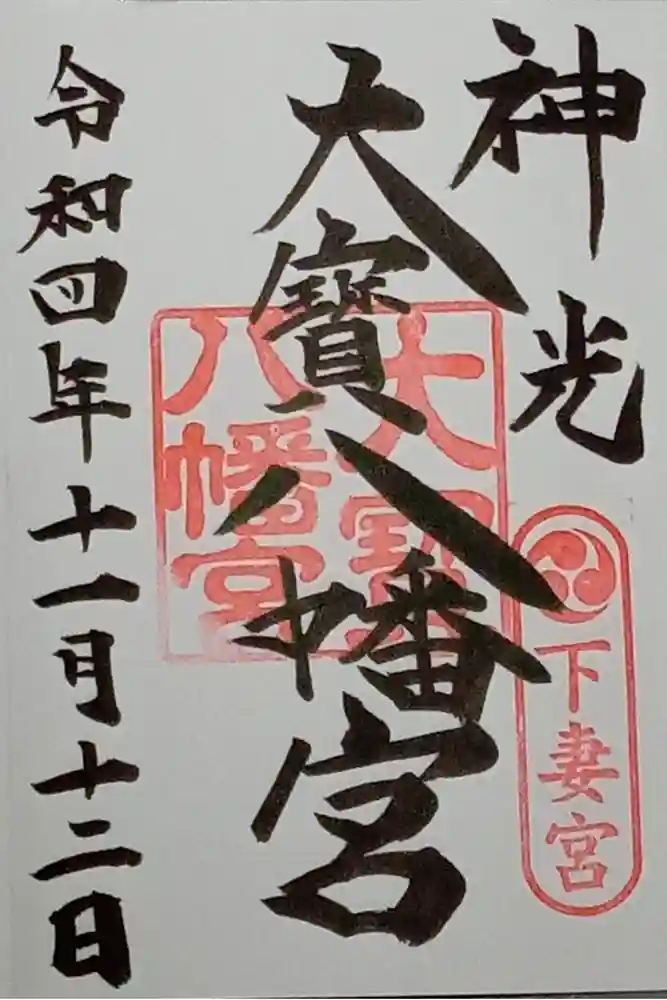 神光
下妻宮
大寶八幡宮
大寶
八幡宮
令和四年十一月十二日